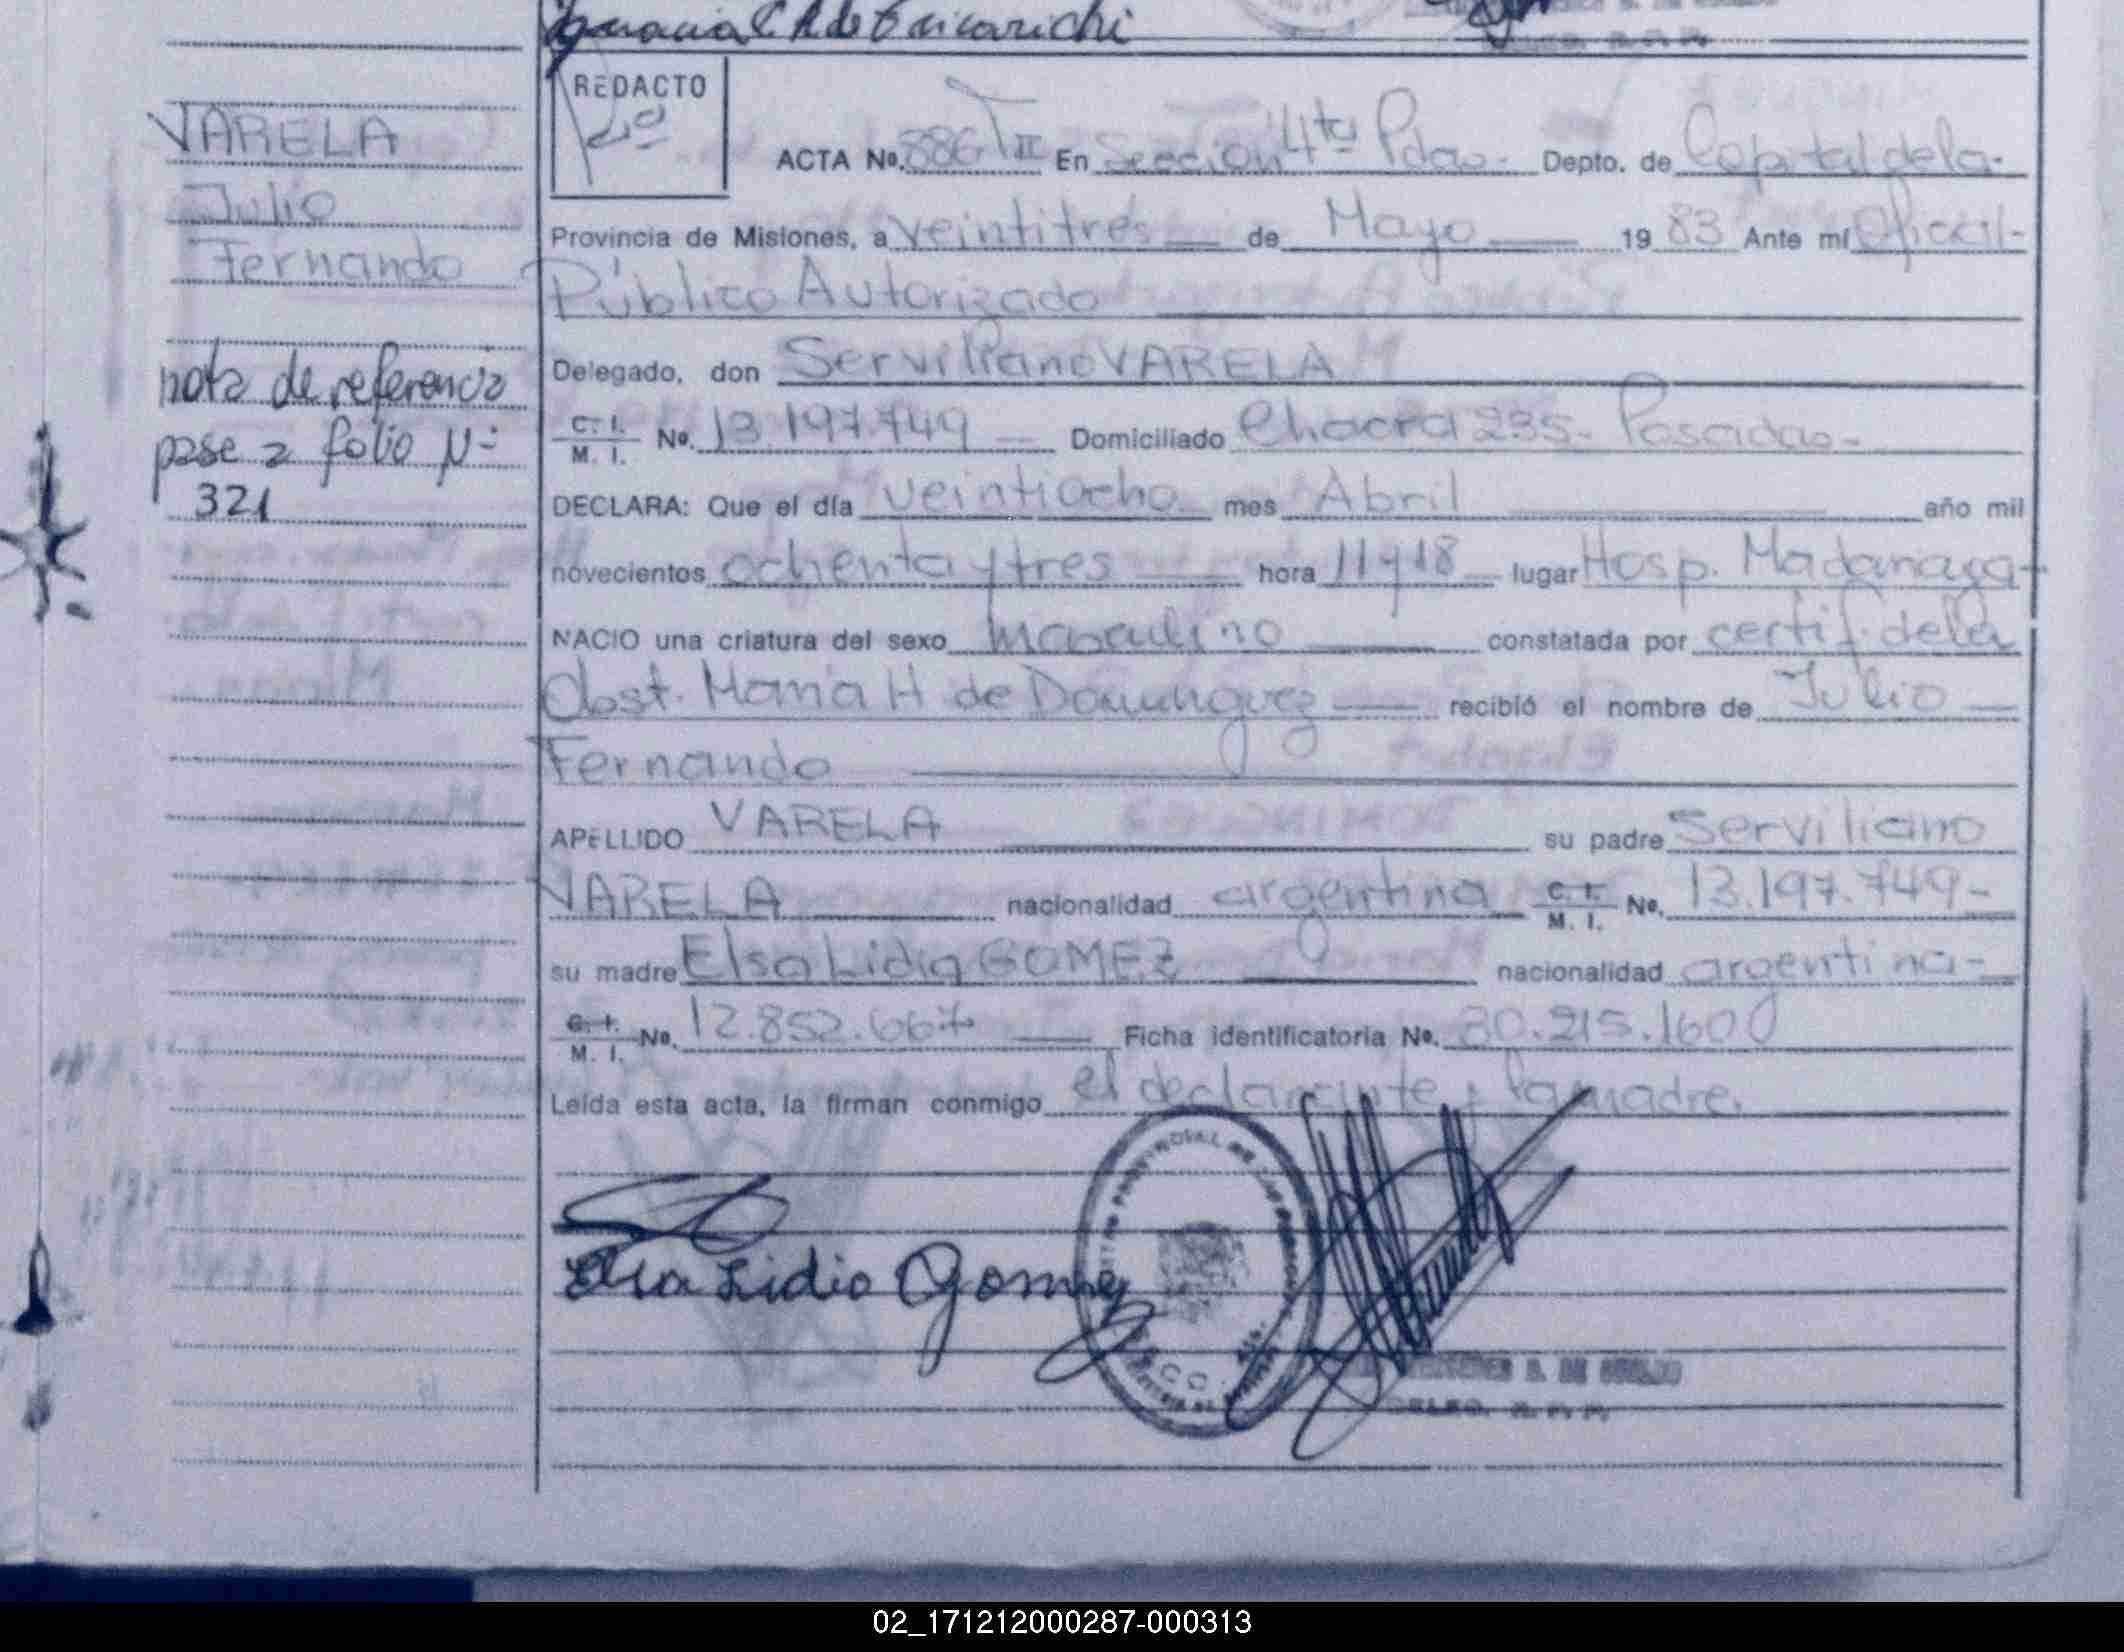 Ignacia C A de
REDACTO
VARELA
Julio
Fernando
nota de referencia
pase a folio Nº
321
ACTA No. 886 TII En Sección 4ta Pdas- Depto. de Capital de la-
Provincia de Misiones, a veintitrés de Mayo 1983 Ante mí Oficial-
Público Autorizado
Delegado, don Serviliano VARELA
C. I. M. I. No. 13.197.749 Domiciliado Chacra 235- Posadas-
DECLARA: Que el día veintiocho mes Abril año mil
novecientos ochenta y tres hora 11 y 18 lugar Hosp. Madariaga-
NACIO una criatura del sexo masculino constatada por certif. de la
Obst. Maria H de Dominguez recibió el nombre de Julio
Fernando
APELLIDO VARELA su padre Serviliano
VARELA nacionalidad argentina C. I. M. I. No. 13.197.749-
su madre Elsa Lidia GOMEZ nacionalidad argentina-
C. I. M. I. No. 12.852.667 Ficha identificatoria No. 30.215.160
Leída esta acta, la firman conmigo el declarante y la madre.
Elsa Lidia Gomez
S. DE ARAUJO
DELEG. R. P. P.
02_171212000287-000313